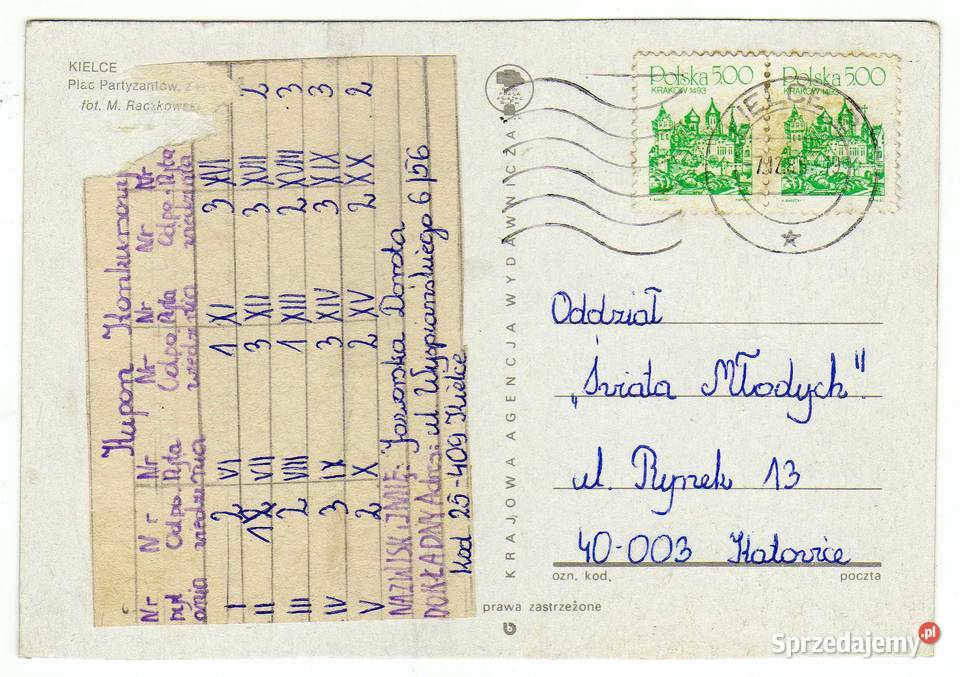 KIELCE
Plac Partyzantów, z
fot. M. Raczkowski
Kupon Konkursowy
Nr Nr Nr Nr Nr Nr Nr
pyt Odpo Pyta Odpo Pyta Odpo Pyta
ania wiedzenia wiedzenia wiedzenia
I 2 VI 1 XI 3 XVI
II 1 VII 3 XII 3 XVII 2
III 2 VIII 1 XIII 2 XVIII 3
IV 3 IX 3 XIV 3 XIX 3
V 2 X 2 XV 2 XX 2
NAZWISK, IMIĘ: Jaworska Dorota
DOKŁADNY Adres: ul. Wyspiańskiego 6/56
Kod 25-409 Kielce
KRAJOWA AGENCJA WYDAWNICZA
prawa zastrzeżone
Polska 500
KRAKÓW 1493
Polska 500
KRAKÓW 1493
KIELCE
Oddział
„Świata Młodych"
ul. Rynek 13
40-003 Katowice
ozn. kod. poczta
Sprzedajemy.pl